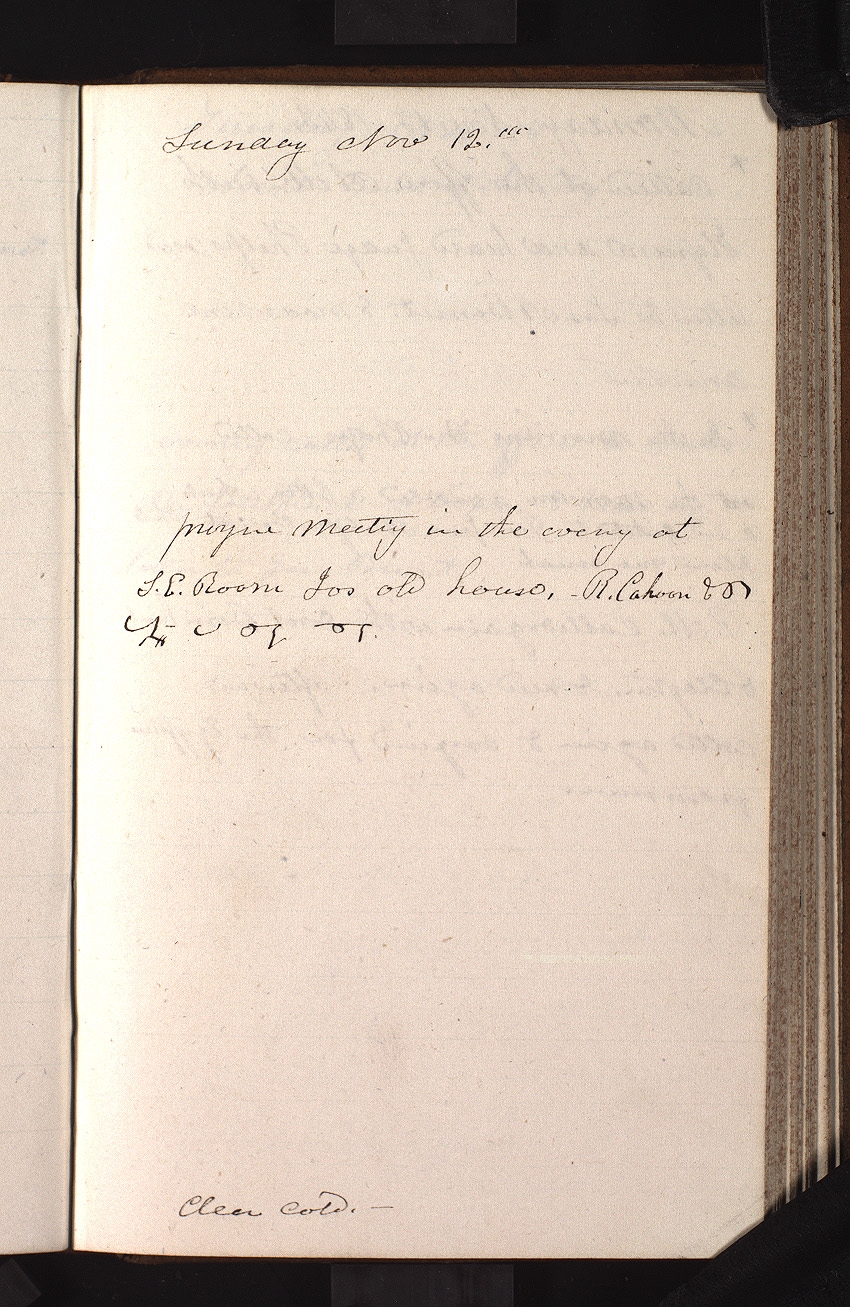 Sunday Nov 12.
prayer Meeting in the eveng at
S.E. Room Jos old house, - R. Cahoon &
Clear Cold. -